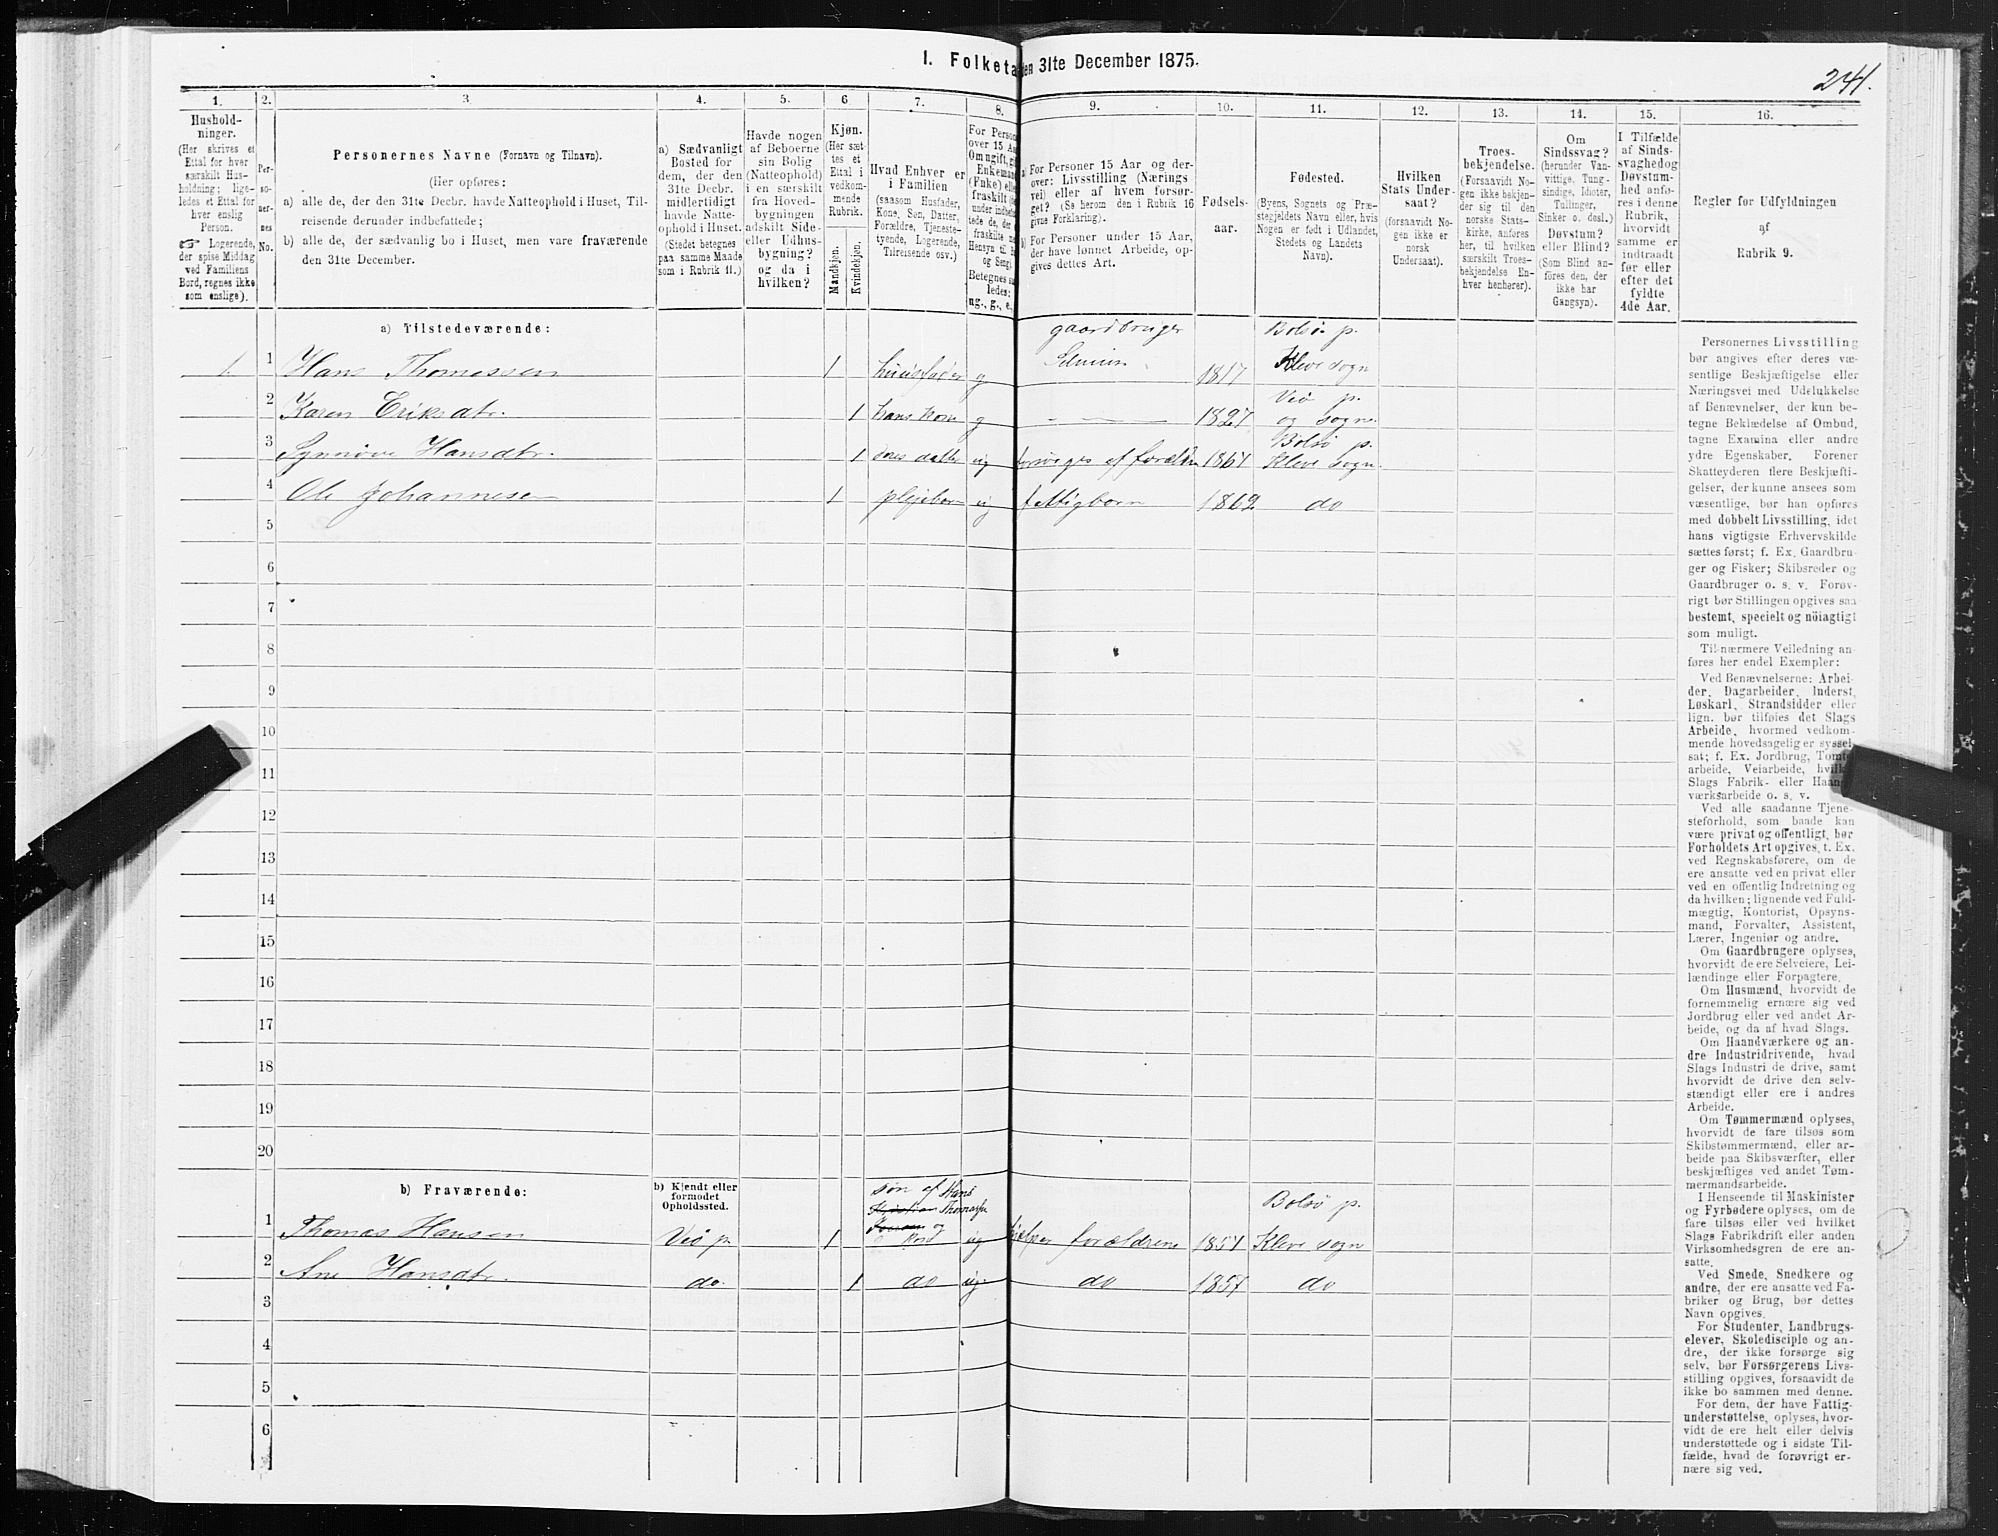 I. Folketa en 31te December 1875.
241.
1.
2.
3.
4.
5.
6.
7.
8.
9.
10.
11.
12.
13.
14.
15.
16.
Hushold-
ninger.
(Her skrives et
Ettal for hver
særskilt Hus-
holdning; lige-
ledes et Ettal for
hver enslig
Person.
☞ Logerende,
der spise Middag
ved Familiens
Bord, regnes ikke
som enslige).
Per-
so-
ner-
nes
No.
Personernes Navne (Fornavn og Tilnavn).
(Her opføres:
a) alle de, der den 31te Decbr. havde Natteophold i Huset, Til-
reisende derunder indbefattede;
b) alle de, der sædvanlig bo i Huset, men vare fraværende
den 31te December.
a) Sædvanligt
Bosted for
dem, der den
31te Decbr.
midlertidigt
havde Natte-
ophold i Huset.
(Stedet betegnes
paa samme Maade
som i Rubrik 11.)
Havde nogen
af Beboerne
sin Bolig
(Natteophold)
i en særskilt
fra Hoved-
bygningen
adskilt Side-
eller Udhus-
bygning?
og da i
hvilken?
Kjøn.
(Her sæt-
tes et
Ettal i
vedkom-
mende
Rubrik.
Mandkjøn.
Kvindekjøn.
Hvad Enhver er
i Familien
(saasom Husfader,
Kone, Søn, Datter,
Forældre, Tjeneste-
tyende, Logerende,
Tilreisende osv.)
For Person
over 15 Aa
Om ugift, gi
Enkeman
(Fnke) elle
fraskilt
Betegnes s
ledes:
ug., g., e.,
a) For Personer 15 Aar og der-
over: Livsstilling (Nærings
vei) eller af hvem forsør-
get? (Se herom den i Rubrik 16
givne Forklaring).
b) For Personer under 15 Aar,
der have lønnet Arbeide, op-
gives dettes Art.
Fødsels-
aar.
Fødested.
(Byens, Sognets og Præ-
stegjeldets Navn eller, hvis
Nogen er født i Udlandet,
Stedets og Landets
Navn).
Hvilken
Stats Under-
saat?
(forsaavidt No-
gen ikke er
norsk
Undersaat).
Troes-
bekjendelse.
(Forsaavidt No-
gen ikke bekjen-
der sig til den
norske Stats-
kirke, anføres
her, til hvilken
særskilt Troes-
bekjendelse En-
hver henhører).
Om
Sindssvag?
(herunder Van-
vittige, Tung-
sindige, Idioter,
Tullinger,
Sinker o. desl.)
Døvstum?
eller Blind?
(Som Blind an-
føres den, der
ikke har
Gangsyn).
I Tilfælde
af Sinds-
svaghedog
Døvstum-
hed anfø-
res i denne
Rubrik,
hvorvidt
samme er
indtraadt
før eller
efter det
fyldte
4de Aar.
Regler for Udfyldningen
af
Rubrik 9.
a) Tilstedeværende:
gaardbruger Bolsø p.
1. 1 Hans Thomassen 1 huusfader g 1817 Kleve sogn
2 Karen Eriksdtr. 1 hans kone g 1827 Veø p. og sogn.
3 Synnøve Hansdtr. 1 deres datter ug forsørges af forældre 1867 Bolsø p. Kleve sogn.
4 Ole Johannesen 1 plejebarn ug fattigbarn 1862 do
5
6
7
8
9
10
11
12
13
14
15
16
17
18
19
20
b) Fraværende:
b) Kjendt eller
formodet
Opholdssted.
1 Thomas Hansen Veø p. 1 søn af Hans Thomassen og ug hjelper forældrene 1857 Bolsø p. Kleve sogn
2 Ane Hansdtr. do. 1 do ug. do 1857 do
3
4
5
6
Personernes Livsstilling
bør angives efter deres væ-
sentlige Beskjæftigelse eller
Næringsvei med Udelukkelse
af Benævnelser, der kun be-
tegne Beklædelse af Ombud,
tagne Examina eller andre
ydre Egenskaber. Forener
Skatteyderen flere Beskjæfti-
gelser, der kunne ansees som
væsentlige, bør han opføres
med dobbelt Livsstilling, idet
hans vigtigste Erhvervskilde
sættes først; f. Ex. Gaardbru-
ger og Fisker; Skibsreder og
Gaardbruger o. s. v. Forøv-
rigt bør Stillingen opgives saa
bestemt, specielt og nöiagtigt
som muligt.
Til nærmere Veiledning an-
føres her endel Exempler:
Ved Benævnelserne: Arbei-
der, Dagarbeider, Inderst,
Løskarl, Strandsidder eller
lign. bør tilføies det Slags
Arbeide, hvormed vedkom-
mende hovedsagelig er syssel-
sat; f. Ex. Jordbrug, Tomt-
arbeide, Veiarbeide, hvilket
Slags Fabrik- eller Haand-
værksarbeide o. s. v.
Ved alle saadanne Tjene-
steforhold, som baade kan
være privat og offentligt, bør
Forholdets Art opgives, t. Ex.
ved Regnskabsførere, om de
ere ansatte ved en privat eller
ved en offentlig Indretning og
da hvilken; lignende ved Fuld-
mægtig, Kontorist, Opsyns-
mand, Forvalter, Assistent,
Lærer, Ingeniør og andre.
Om Gaardbrugere oplyses,
hvorvidt de ere Selveiere, Lei-
lændinge eller Forpagtere.
Om Husmænd, hvorvidt de
fornemmelig ernære sig ved
Jordbrug eller ved andet Ar-
beide, og da af hvad Slags.
Om Haandværkere og an-
dre Industridrivende, hvad
Slags Industri de drive, samt
hvorvidt de drive den selv-
stændigt eller ere i andres
Arbeide.
Om Tømmermænd oplyses,
hvorvidt de fare tilsøs som
Skibstømmermænd, eller ar-
beide paa Skibsværfter, eller
beskjæftiges ved andet Tøm-
mermandsarbeide.
I Henseende til Maskinister
og Fyrbødere oplyses, om de
fare tilsøs eller ved hvilket
Slags Fabrikdrift eller anden
Virksomhedsgren de ere an-
satte.
Ved Smede, Snedkere og
andre, der ere ansatte ved Fa-
briker og Brug, bør dettes
Navn opgives.
For Studenter, Landbrugs-
elever, Skoledisciple og an-
dre, der ikke forsørge sig
selv, bør Forsørgerens Livs-
stilling opgives, forsaavidt de
ikke bo sammen med denne.
For dem, der have Fattig-
understøttelse, oplyses, hvor-
vidt de ere helt eller delvis
understøttede og i sidste Til-
fælde, hvad de forøvrigt er-
nære sig ved.